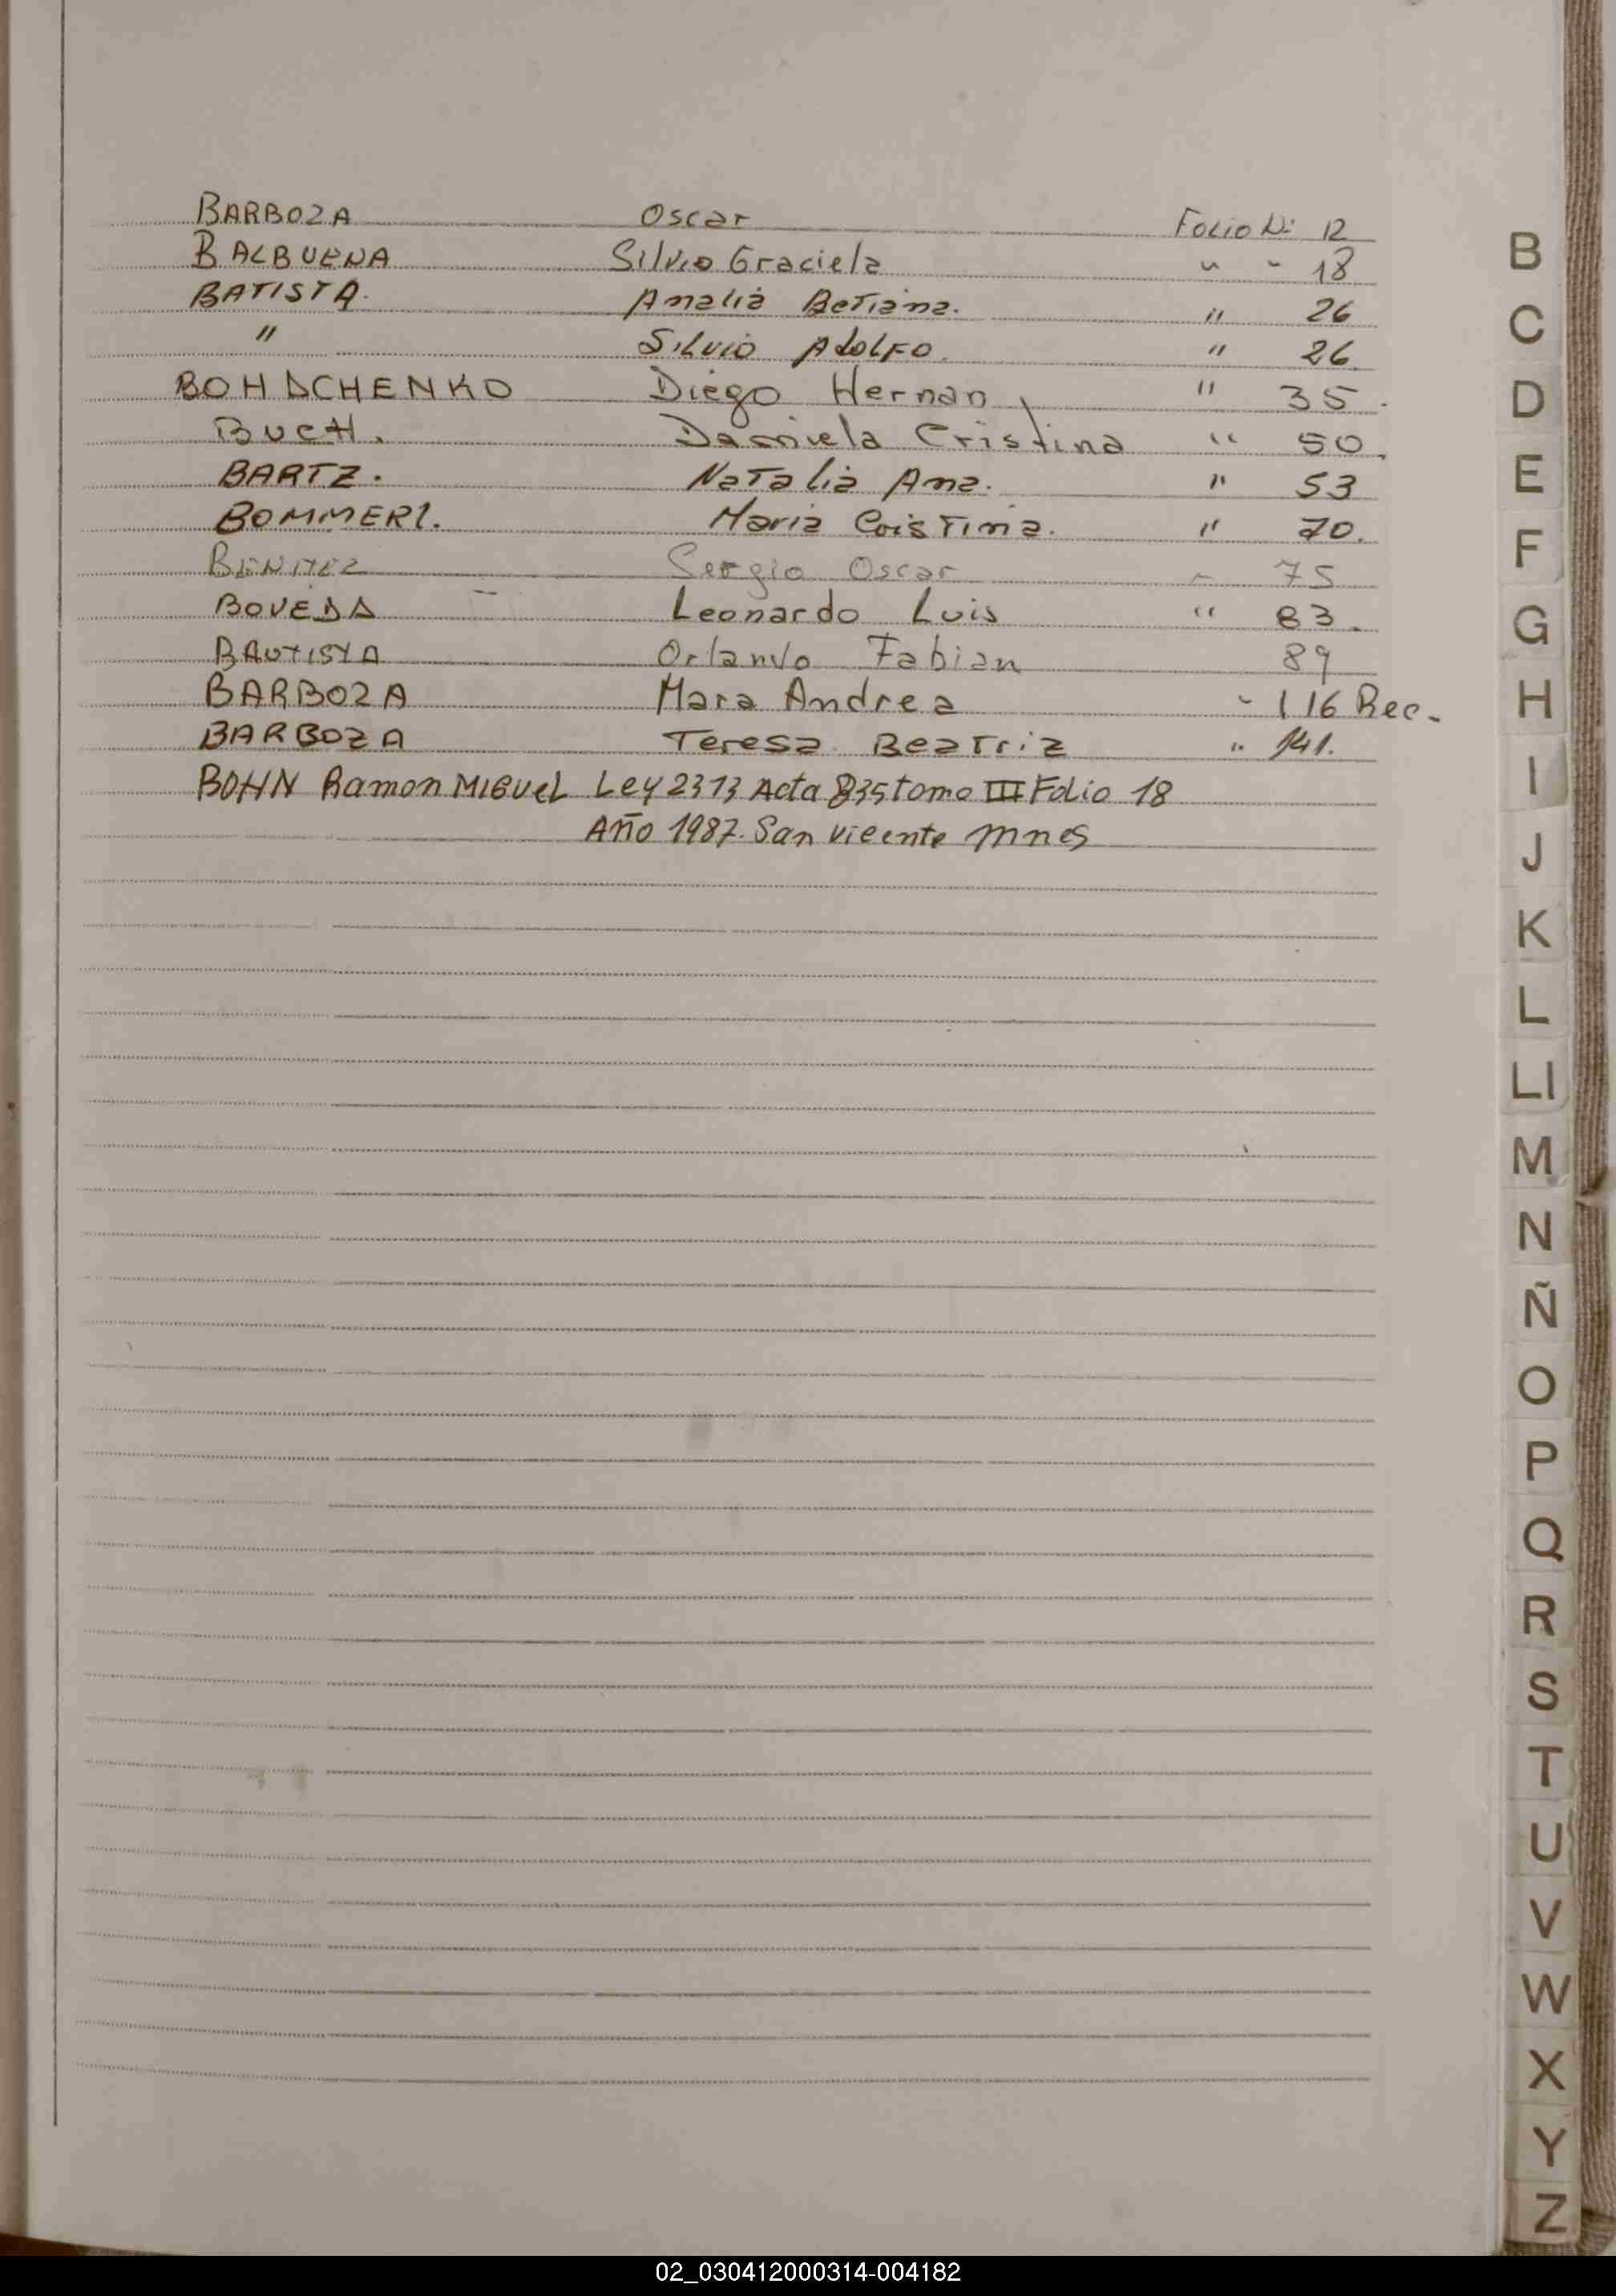 BARBOZA Oscar Folio Nº 12
BALBUENA Silvio Graciela " " 18
BATISTA. Amalia Betiana. " 26
" Silvio Adolfo. " 26.
BOHDCHENKO Diego Hernan " 35.
BUCH. Daniela Cristina " 50.
BARTZ. Natalia Ana. " 53
BOMMERI. Maria Cristina. " 70.
BENITEZ Sergio Oscar " 75
BOVEDA Leonardo Luis " 83.
BAUTISTA Orlando Fabian 89
BARBOZA Mara Andrea " 116 Rec.
BARBOZA Teresa Beatriz " 141.
BOHN Ramon Miguel Ley 2373 Acta 835 tomo III Folio 18
Año 1987. San Vicente Mnes
B
C
D
E
F
G
H
I
J
K
L
Ll
M
N
Ñ
O
P
Q
R
S
T
U
V
W
X
Y
Z
02_030412000314-004182